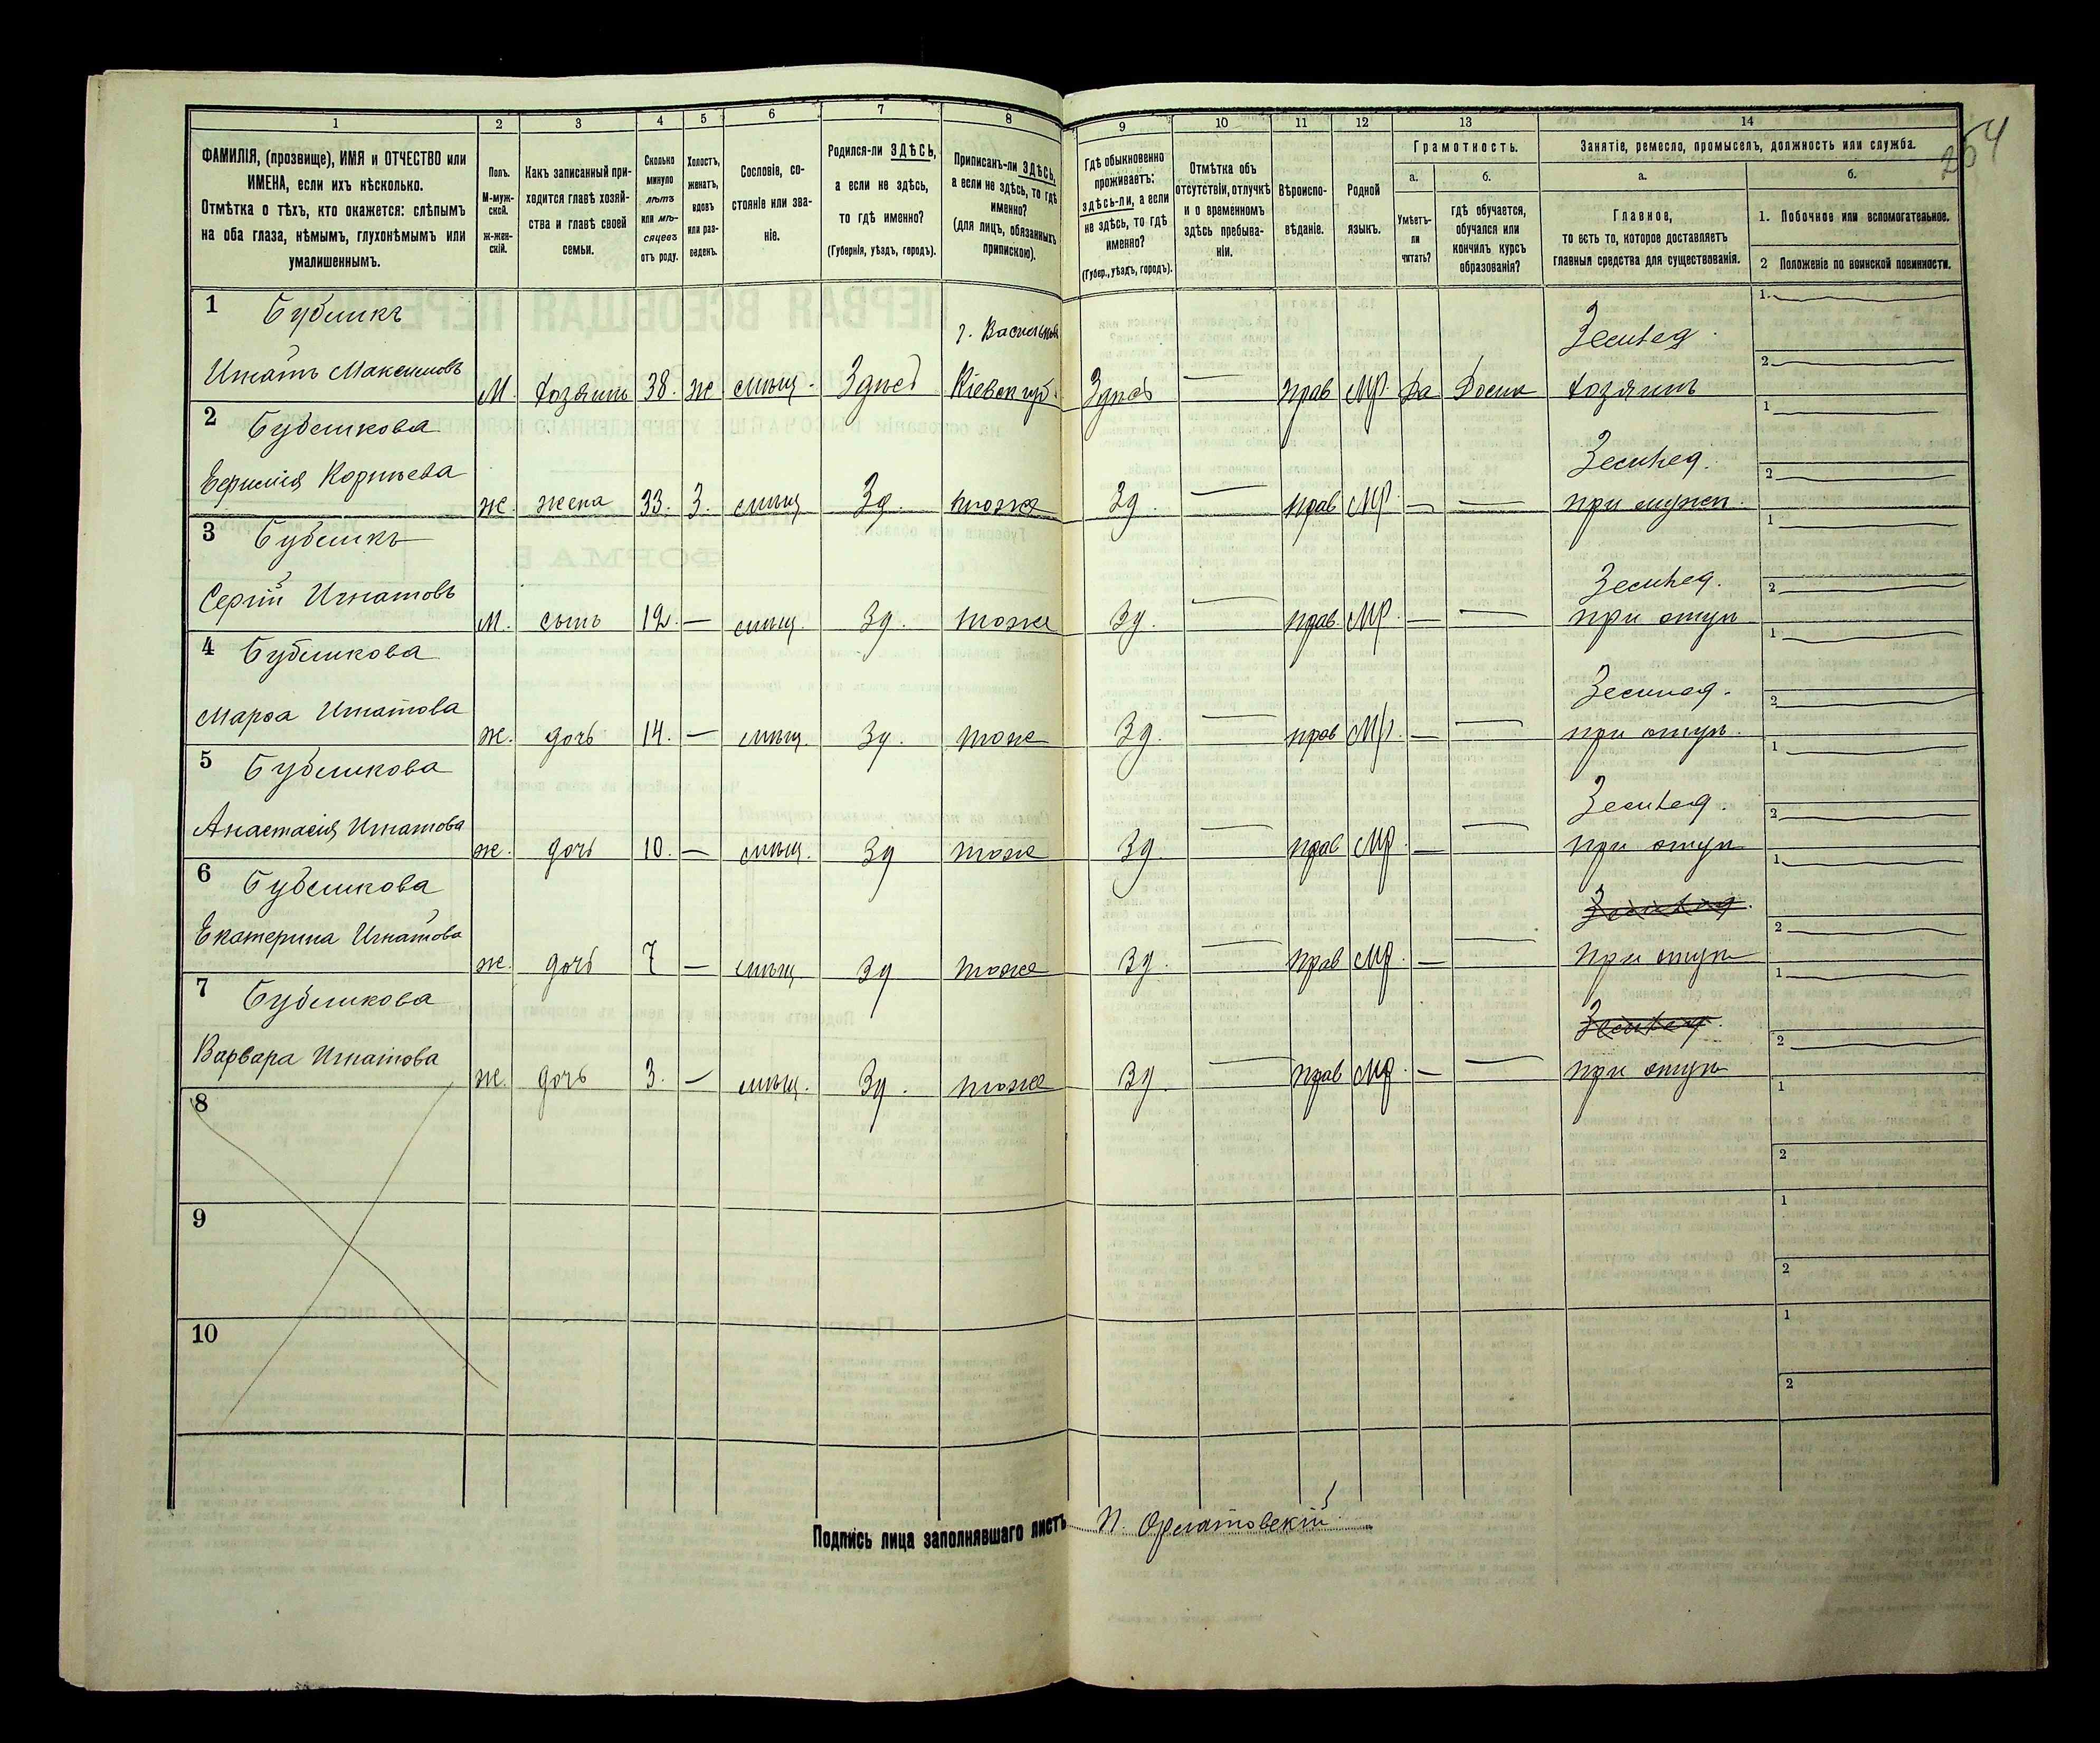 254
1 2 3 4 5 6 7 8 9 10 11 12 13 14
ФАМИЛІЯ, (прозвище), ИМЯ и ОТЧЕСТВО или
ИМЕНА, если ихъ нѣсколько.
Отмѣтка о тѣхъ, кто окажется: слѣпымъ
на оба глаза, нѣмымъ, глухонѣмымъ или
умалишеннымъ.
Полъ.
М-муж-
ской.
ж-жен-
скій.
Какъ записанный при-
ходится главѣ хозяй-
ства и главѣ своей
семьи.
Сколько
минуло
лѣтъ
или мѣ-
сяцевъ
отъ роду.
Холостъ,
женатъ,
вдовъ
или раз-
веденъ.
Сословіе, со-
стояніе или зва-
ніе.
Родился-ли ЗДѢСЬ,
а если не здѣсь,
то гдѣ именно?
(Губернія, уѣздъ, городъ).
Приписанъ-ли ЗДѢСЬ,
а если не здѣсь, то гдѣ
именно?
(для лицъ, обязанныхъ
припискою).
Гдѣ обыкновенно
проживаетъ:
здѣсь-ли, а если
не здѣсь, то гдѣ
именно?
(Губер., уѣздъ, городъ).
Отмѣтка объ
отсутствіи, отлучкѣ
и о временномъ
здѣсь пребыва-
ніи.
Вѣроиспо-
вѣданіе.
Родной
языкъ.
Грамотность.
а.
Умѣетъ-
ли
читать?
б.
гдѣ обучается,
обучался или
кончилъ курсъ
образованія?
Занятіе, ремесло, промыселъ, должность или служба.
а.
Главное,
то есть то, которое доставляетъ
главныя средства для существованія.
б.
1. Побочное или вспомогательное.
2 Положеніе по воинской повинности.
1 Бубликъ г. Васильков Землед. 1.
Игнатъ Максимовъ М. хозяинъ 38. ж мѣщ. Здѣсь Кіевск губ. Здѣсь — прав МР. да Дома хозяинъ 2
2 Бубликова Землед. 1
Корнѣева ж. жена 33. З. мѣщ Зд. тоже Зд. — прав МР. — — при мужѣ. 2
3 Бубликъ Землед. 1
Сергій Игнатовъ М. сынъ 12. — мѣщ. Зд. тоже Зд. — прав МР. — — при отцѣ 2
4 Бубликова Землед. 1
Марѳа Игнатова ж. дочь 14. — мѣщ. Зд. тоже Зд. — прав МР. — — при отцѣ. 2
5 Бубликова Землед. 1
Анастасія Игнатова ж. дочь 10. — мѣщ. Зд тоже Зд. — прав МР. — — при отцѣ 2
6 Бубликова Землед. 1
Екатерина Игнатова ж. дочь 7 — мѣщ Зд тоже Зд. — прав МР. — — при отцѣ 2
7 Бубликова Землед. 1
Варвара Игнатова ж. дочь 3. — мѣщ. Зд. тоже Зд. — прав МР. — — при отцѣ 2
8 1
2
9 1
2
10 1
2
Подпись лица заполнявшаго листъ П.